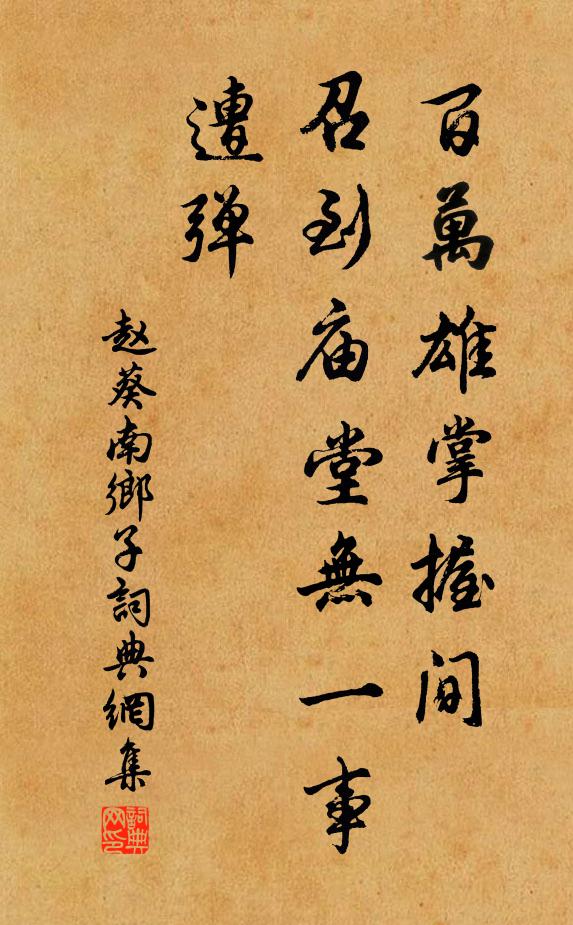 百萬雄掌握间
召到庙堂無一事
遭弹
赵葵南鄉子詞典網集
詞典
网印